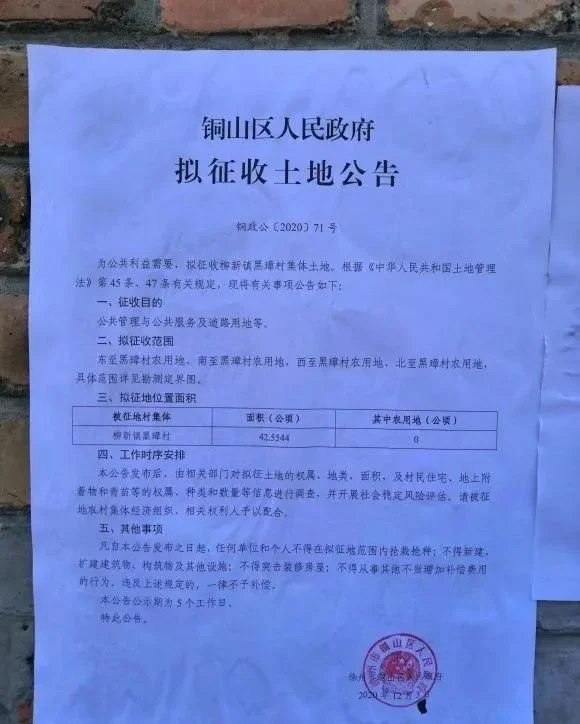 铜山区人民政府
拟征收土地公告
铜政公〔2020〕71 号
为公共利益需要，拟征收柳新镇黑璋村集体土地。根据《中华人民共和国土地管理
法》第 45 条、47 条有关规定，现将有关事项公告如下：
一、征收目的
公共管理与公共服务及道路用地等。
二、拟征收范围
东至黑璋村农用地，南至黑璋村农用地，西至黑璋村农用地，北至黑璋村农用地，
具体范围详见勘测定界图。
三、拟征地位置面积
被征地村集体 面积（公顷） 其中农用地（公顷）
柳新镇黑璋村 42.5544 0
四、工作时序安排
本公告发布后，由相关部门对拟征土地的权属、地类、面积，及村民住宅、地上附
着物和青苗等的权属、种类和数量等信息进行调查，并开展社会稳定风险评估。请被征
地农村集体经济组织、相关权利人予以配合。
五、其他事项
凡自本公告发布之日起，任何单位和个人不得在拟征地范围内抢栽抢种；不得新建、
扩建建筑物、构筑物及其他设施；不得突击装修房屋；不得从事其他不当增加补偿费用
的行为。违反上述规定的，一律不予补偿。
本公告公示期为 5 个工作日。
特此公告。
徐州市铜山区人民政府
徐州市铜山区人民政府
2020 年 12 月 3 日